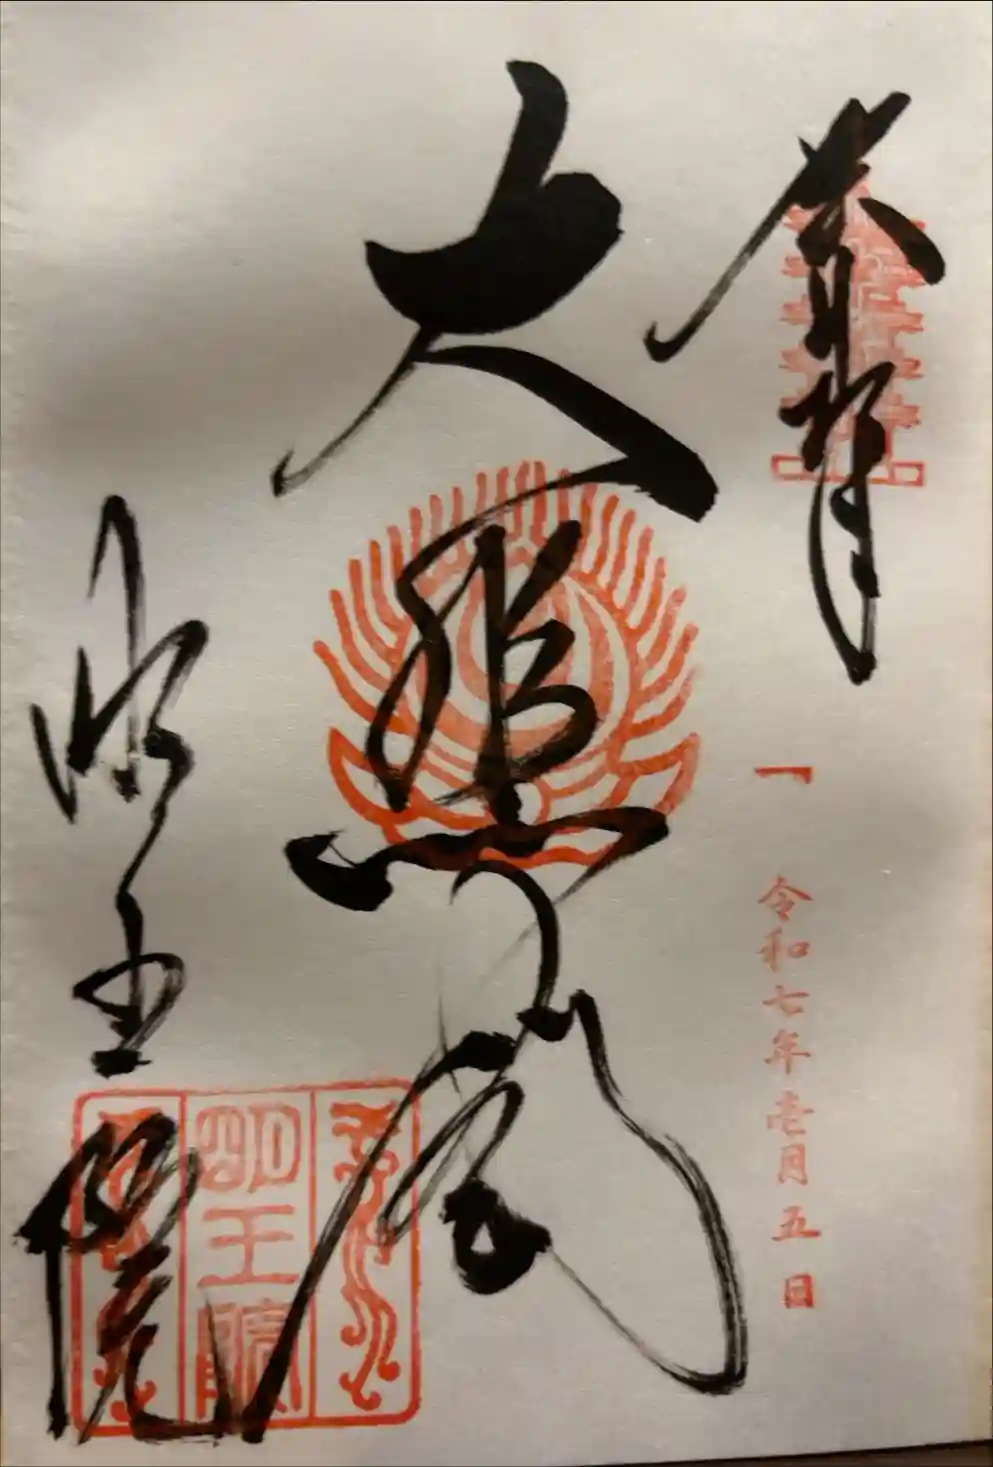 奉拝
令和七年壱月五日
大悲閣
明王院
明王院